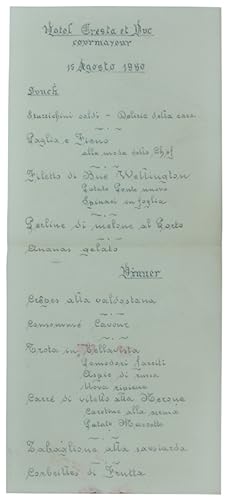 Hotel Cresta et Duc
courmayeur
15 Agosto 1980
Lunch
Stuzzichini caldi - Delizie della casa
Paglia e Fieno
alla moda dello Chef
Filetto di Bue Wellington
Patate Ponte nuovo
Spinaci in foglia
Perline di melone al Porto
Ananas gelato
Dinner
Crêpes alla valdostana
Consommé Cavour
Trota in Bellavista
Pomodori farciti
Aspic di russa
Uova ripiene
Carré di vitello alla Nerone
Carotine alla crema
Patate Mascotte
Zabaglione alla savoiarda
Corbeilles di Frutta